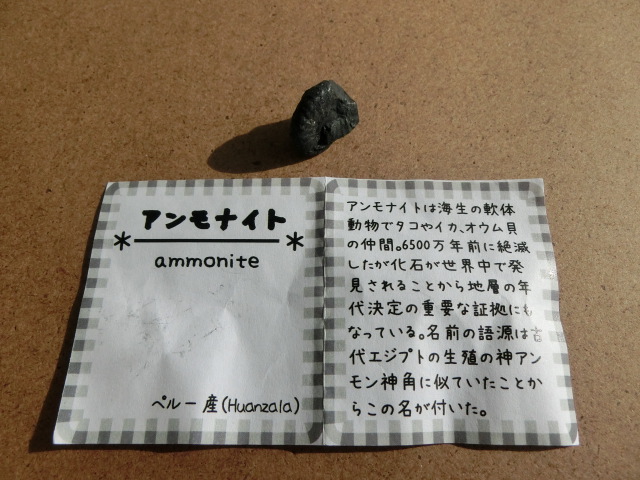 アンモナイト
ammonite
ペルー産(Huanzala)
アンモナイトは海生の軟体
動物でタコやイカ、オウム貝
の仲間。6500万年前に絶滅
したが化石が世界中で発
見されることから地層の年
代決定の重要な証拠にも
なっている。名前の語源は古
代エジプトの生殖の神アン
モン神角に似ていたことか
らこの名が付いた。